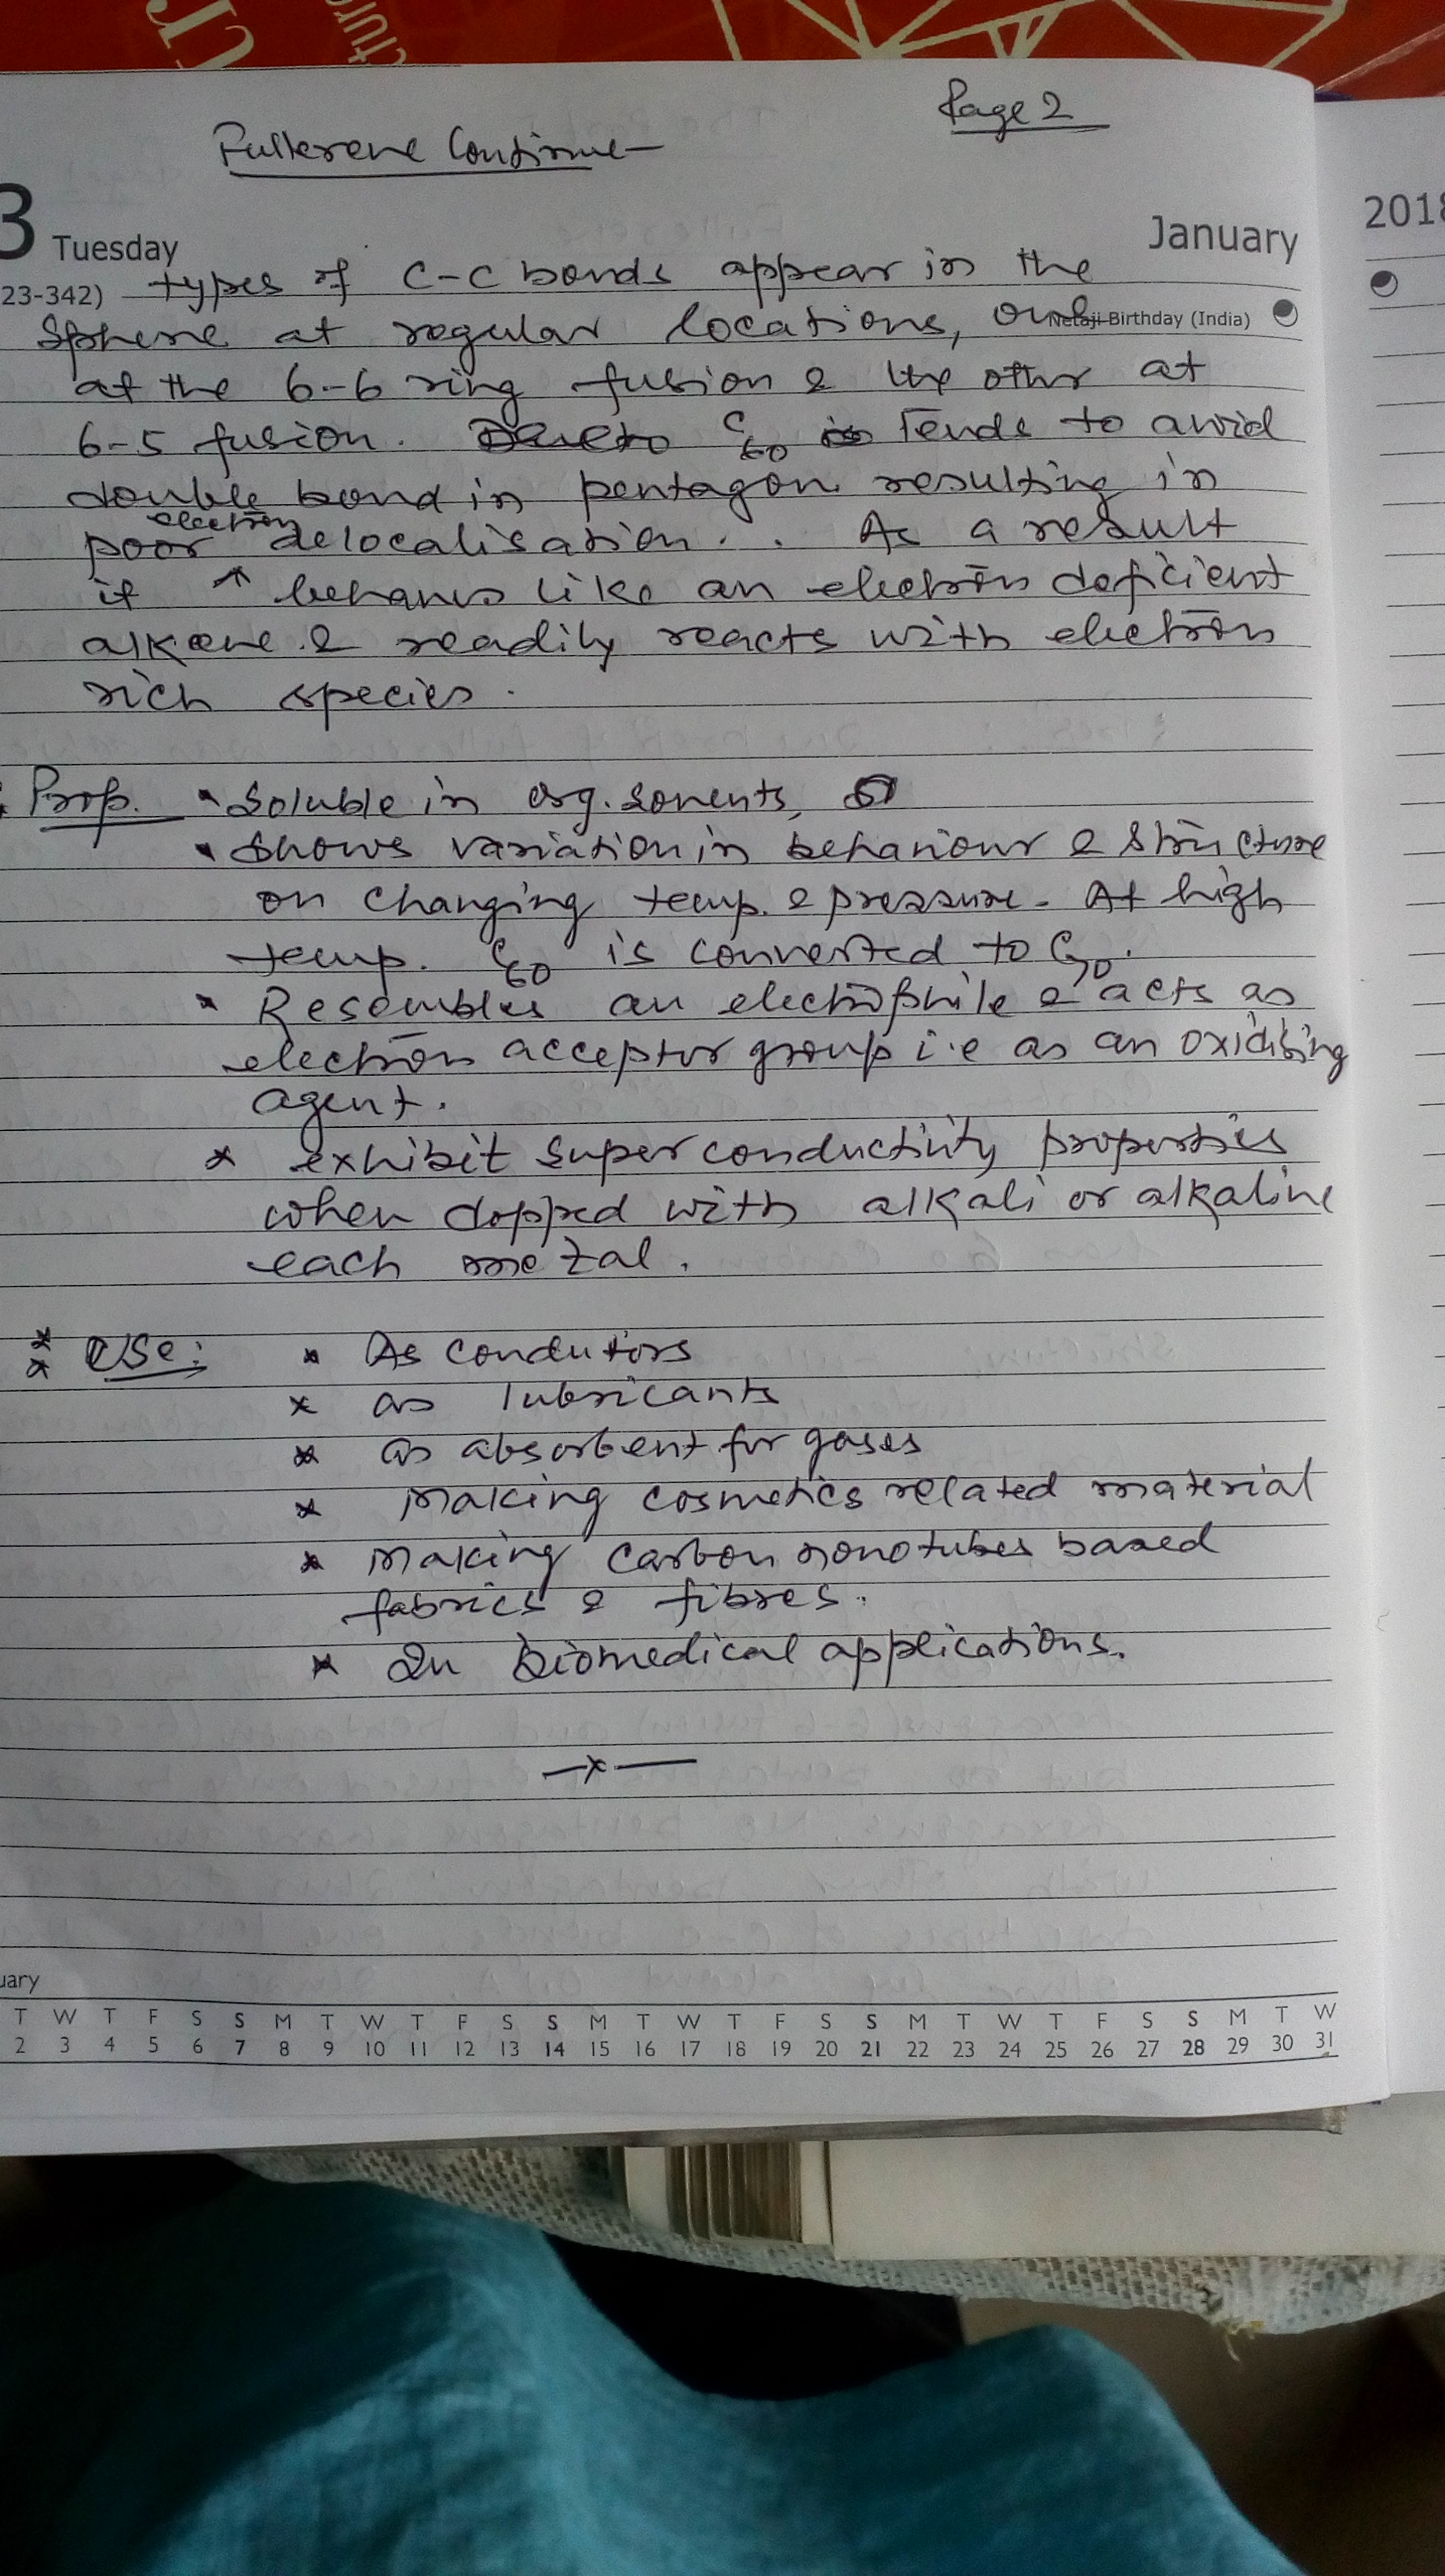 Page 2
Fullerene Continue
3 Tuesday
January
2018
(23-342) types of C-C bonds appear in the
Netaji Birthday (India)
sphere at regular locations, one
at the 6-6 ring fusion & the other at
6-5 fusion. Due to C60 is Tends to avoid
double bond in pentagon resulting in
electron
poor delocalisation. . As a result
it behaves like an electron deficient
alkene & readily reacts with electron
rich species.
Prop. • Soluble in org. solvents,
• Shows variation in behaviour & structure
on changing temp. & pressure. At high
temp. C60 is converted to C70.
• Resembles an electrophile & acts as
electron acceptor group i.e as an oxidising
agent.
* exhibit superconductivity properties
when dopped with alkali or alkaline
each metal.
** Use: * As condutors
* as lubricants
* as absorbent for gases
* Making cosmetics related material
* Making carbon nonotubes based
fabrics & fibres.
* In biomedical applications.
—x—
uary
T W T F S S M T W T F S S M T W T F S S M T W T F S S M T W
2 3 4 5 6 7 8 9 10 11 12 13 14 15 16 17 18 19 20 21 22 23 24 25 26 27 28 29 30 31